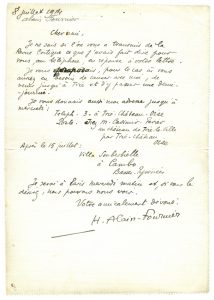 8 juillet 1911
Alain Fournier
Cher ami,
Je ne sais si l'on vous a transmis de la
Revue Critique ce que j'avais fait dire pour
vous au téléphone en réponse à votre lettre.
Je vous , pour le cas où vous
auriez besoin de causer avec moi, de
venir jusqu'à Trie et d'y passer une demi-
journée.
Je vous donnais aussi mon adresse jusqu'à
mercredi :
Téléph : 3. à Trie-Château - Oise
Lettre : chez M. Casimir-Perier
au château de Trie la Ville
par Trie-Château
Oise
Après le 15 juillet :
Villa
à Cambo
Basses-Pyrénées
Je serai à Paris mercredi matin et, si vous le
désirez, nous pourrons nous voir.
Votre amicalement dévoué.
H. Alain-Fournier